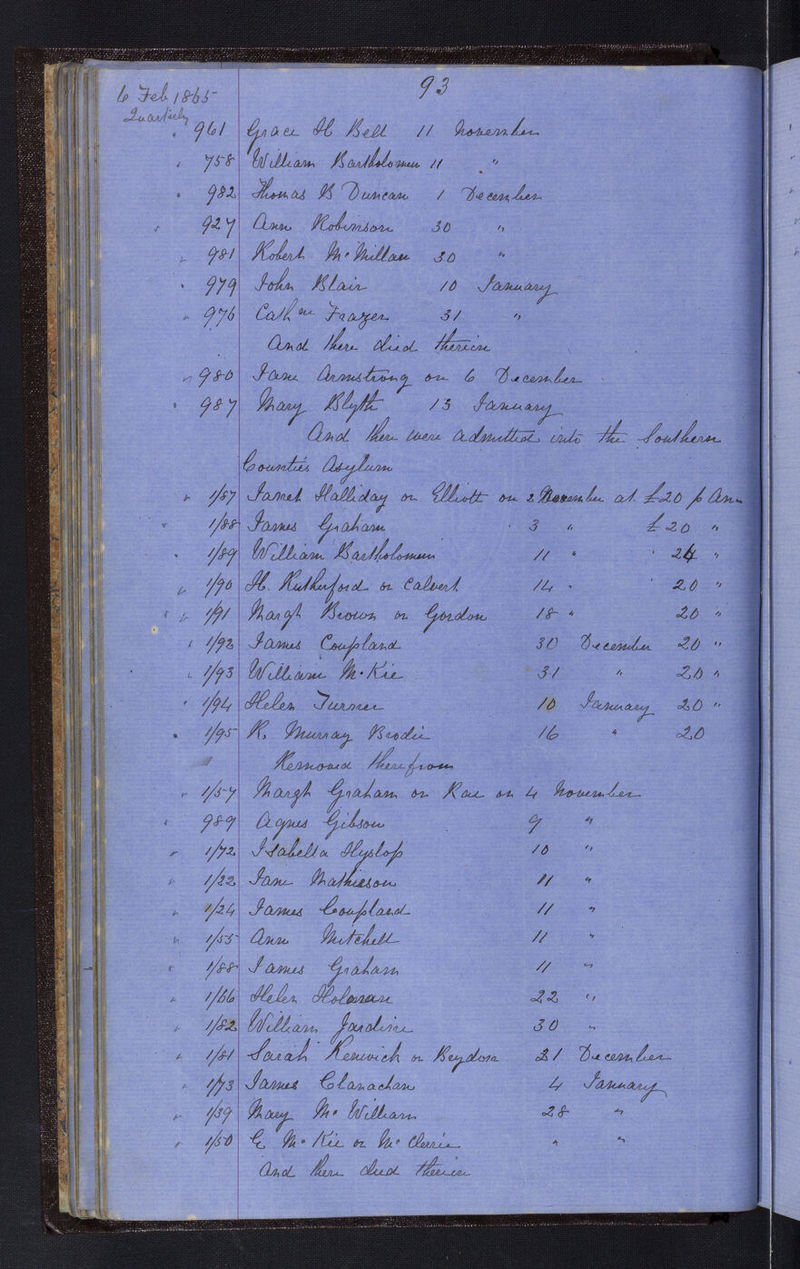 93
6 Feb 1865
Quarterly
961 Grace H Bell 11 November
758 William Bartholomew 11 "
982 Thomas B Duncan 1 December
927 Ann Robinson 30 "
981 Robert McMillan 30 "
979 John Blair 10 January
976 Cathne Frazer 31 "
And there died therein
980 Jane Armstrong on 6 December
987 Mary Blyth 13 January
And there were admitted into the Southern
Counties Asylum
1/87 Janet Halliday or Elliott on 2 November at £20 p Ann
1/88 James Graham 3 " £20 "
1/89 William Bartholomew 11 " 24 "
1/90 H. Rutherford or Calvert 14 " 20 "
1/91 Margt Brown or Gordon 18 " 20 "
1/92 James Coupland 30 December 20 "
1/93 William McKie 31 " 20 "
1/94 Helen Turner 10 January 20 "
1/95 R. Murray Brodie 16 " 20
Removed therefrom
1/57 Margt Graham or Rae on 4 November
989 Agnes Gibson 9 "
1/72 Isabella Hyslop 10 "
1/22 Jane Mathieson 11 "
1/24 James Coupland 11 "
1/55 Ann Mitchell 11 "
1/88 James Graham 11 "
1/66 Helen 22 "
1/82 William Jardine 30 "
1/81 Sarah Renwick or 21 December
1/73 James Clanachan 4 January
1/39 Mary McWilliam 28 "
1/50 McKie or " "
And there died therein